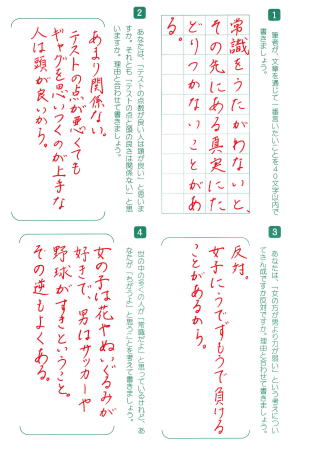 1
筆者が、文章を通じて一番言いたいことを40文字以内で
書きましょう。
常識をうたがわないと、
その先にある真実にた
どりつかないことがあ
る。
2
あなたは、「テストの点数が良い人は頭が良い」と思いま
すか。それとも「テストの点と頭の良さは関係ない」と思
いますか。理由と合わせて書きましょう。
あまり関係ない。
テストの点が悪くても
ギャグを思いつくのが上手な
人は頭が良いから。
3
あなたは、「女の方が男より力が弱い」という考えについ
てさん成ですか反対ですか。理由と合わせて書きましょう。
反対。
女子にうでずもうで負ける
ことがあるから。
4
世の中の多くの人が「常識だよ」と思っているけれど、あ
なたが「ちがうよ」と思うことを考えて書きましょう。
女の子は花やぬいぐるみが
好きで、男はサッカーや
野球がすきということ。
その逆もよくある。